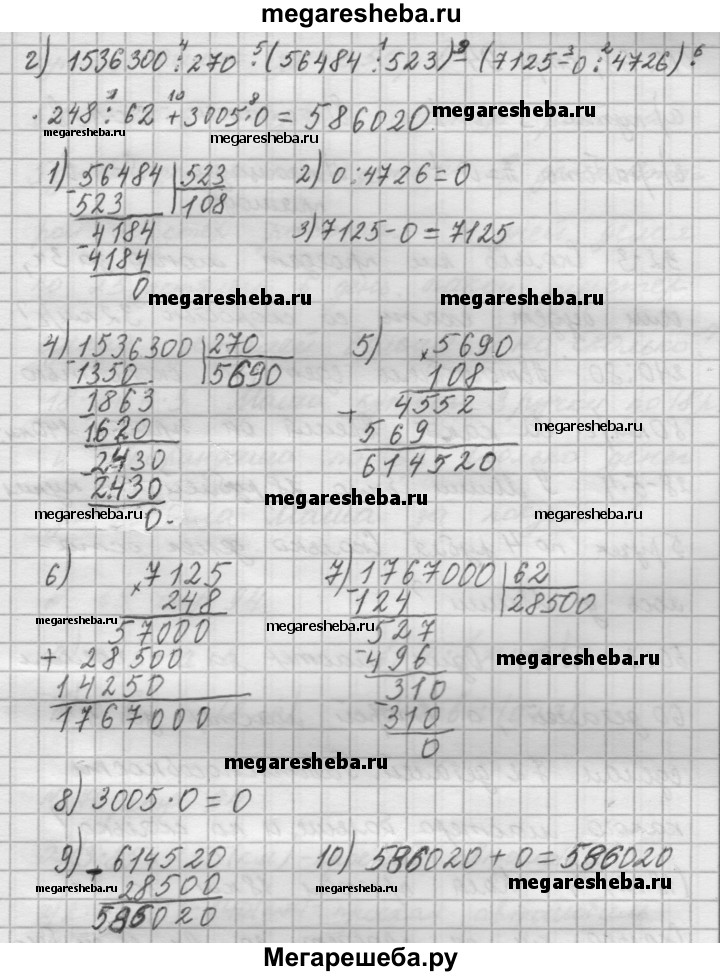 megaresheba.ru
г) 1536300 : 270 · (56484 : 523) - (7125 - 0 : 4726) ·
4 5 1 9 3 2 6
· 248 : 62 + 3005 · 0 = 586020.
7 10 8
megaresheba.ru
megaresheba.ru
megaresheba.ru
1) 56484 | 523 2) 0 : 4726 = 0
- 523 108
- 4184 3) 7125 - 0 = 7125
4184
0
megaresheba.ru megaresheba.ru
4) 1536300 | 270 5) × 5690
- 1350 5690 108
- 1863 + 4552
1620 569 megaresheba.ru
- 2430 614520
2430 megaresheba.ru
megaresheba.ru 0. megaresheba.ru
6) × 7125 7) 1767000 | 62
248 - 124 28500
megaresheba.ru 57000 megaresheba.ru - 527
+ 28500 - 496 megaresheba.ru
14250 - 310
1767000 310
0
megaresheba.ru
8) 3005 · 0 = 0
9) - 614520 10) 586020 + 0 = 586020
megaresheba.ru 28500 megaresheba.ru megaresheba.ru
586020
Мегарешеба.ру